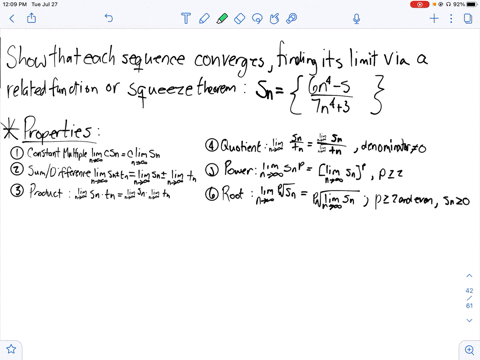 12:09 PM Tue Jul 27
92%
Show that each sequence converges, finding its limit via a
related function or squeeze theorem: Sn = { (6n^4-5)/(7n^4+3) }
* Properties:
① Constant Multiple lim n→∞ cSn = c lim n→∞ Sn
② Sum/Difference lim n→∞ Sn ± tn = lim n→∞ Sn ± lim n→∞ tn
③ Product: lim n→∞ Sn·tn = lim n→∞ Sn · lim n→∞ tn
④ Quotient: lim n→∞ Sn/tn = lim n→∞ Sn / lim n→∞ tn, denominator≠0
⑤ Power: lim n→∞ Sn^p = [lim n→∞ Sn]^p, p≥2
⑥ Root: lim n→∞ ᵖ√Sn = ᵖ√lim n→∞ Sn; p≥2 and even, Sn≥0
42
/
61